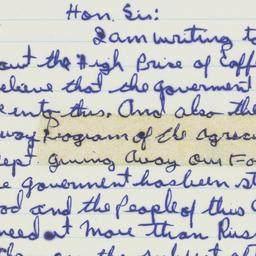 Hon. Sir:
I am writing to
out the High Prise of Coff
elieve that the goverment
ent to this. And also the
way Program of the Agricu
ept giving away our Fo
e goverment has been st
ood and the People of this C
need it More than Russ